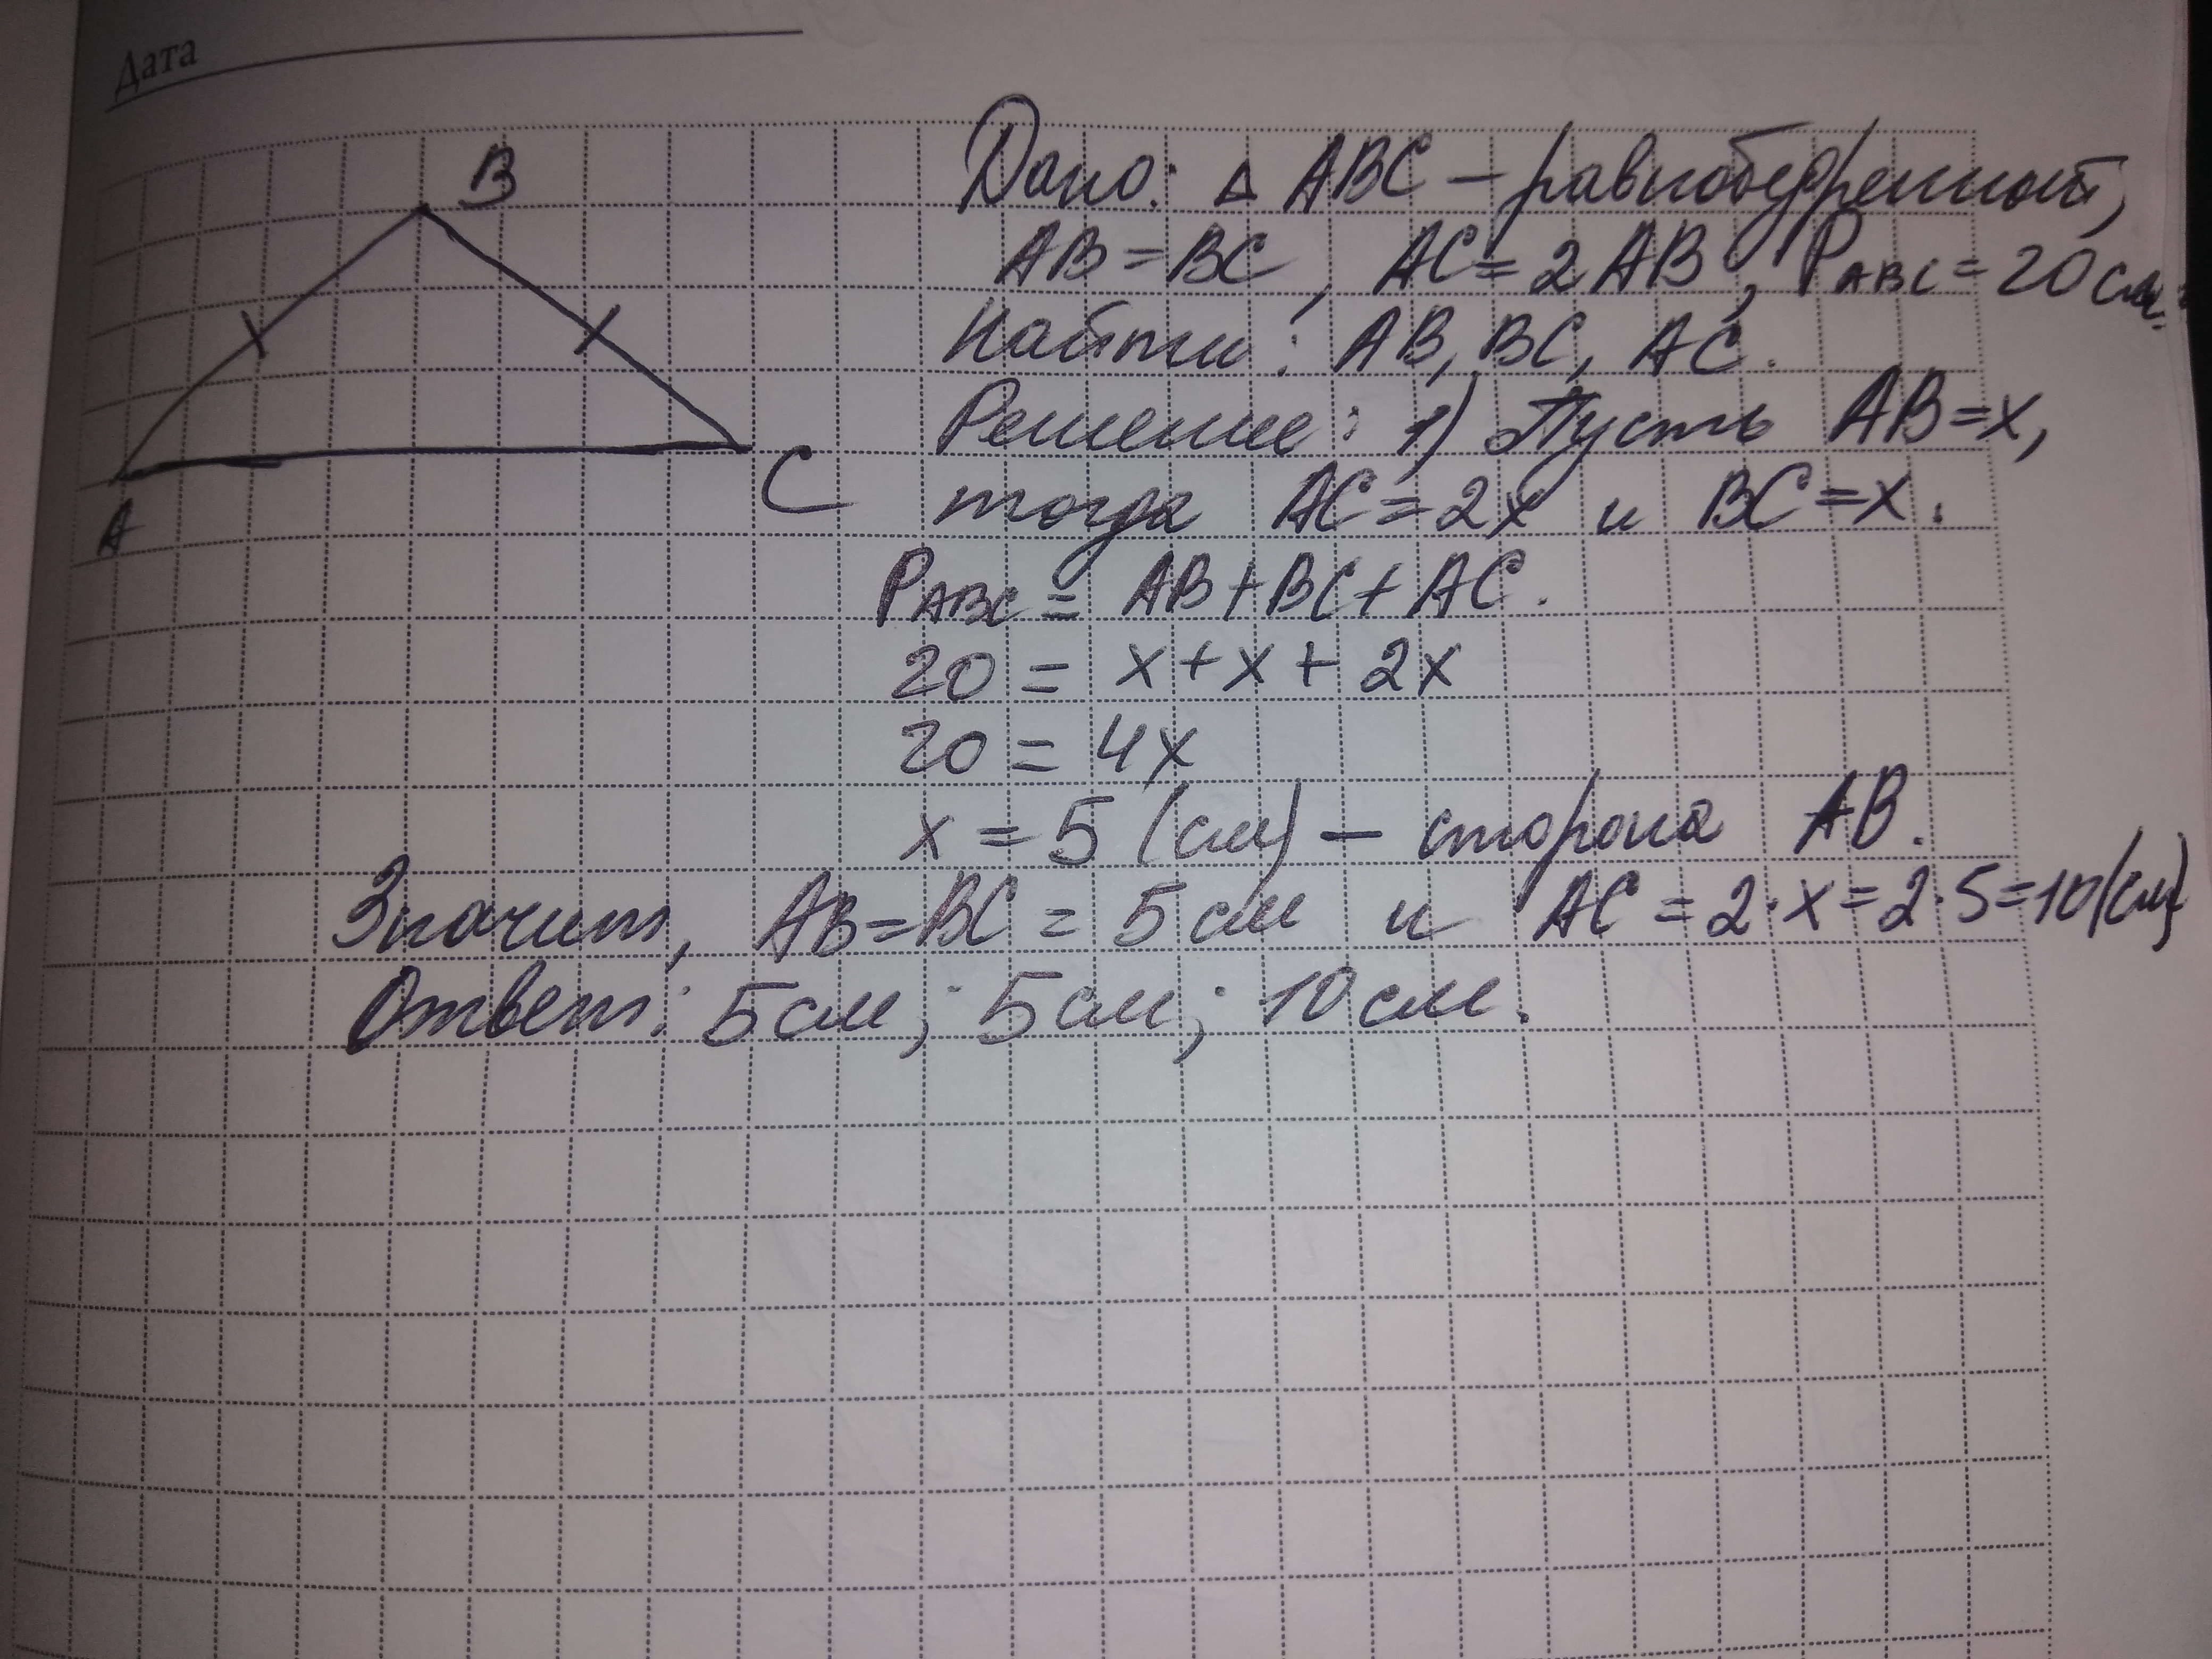 Дата
B
A
C
Дано: △ ABC – равнобедренный,
AB = BC, AC = 2AB, PABC = 20 см.
Найти: AB, BC, AC.
Решение: 1) Пусть AB = x,
тогда AC = 2x и BC = x.
PABC = AB + BC + AC.
20 = x + x + 2x
20 = 4x
x = 5 (см) – сторона AB.
Значит, AB = BC = 5 см и AC = 2 · x = 2 · 5 = 10 (см)
Ответ: 5 см; 5 см; 10 см.